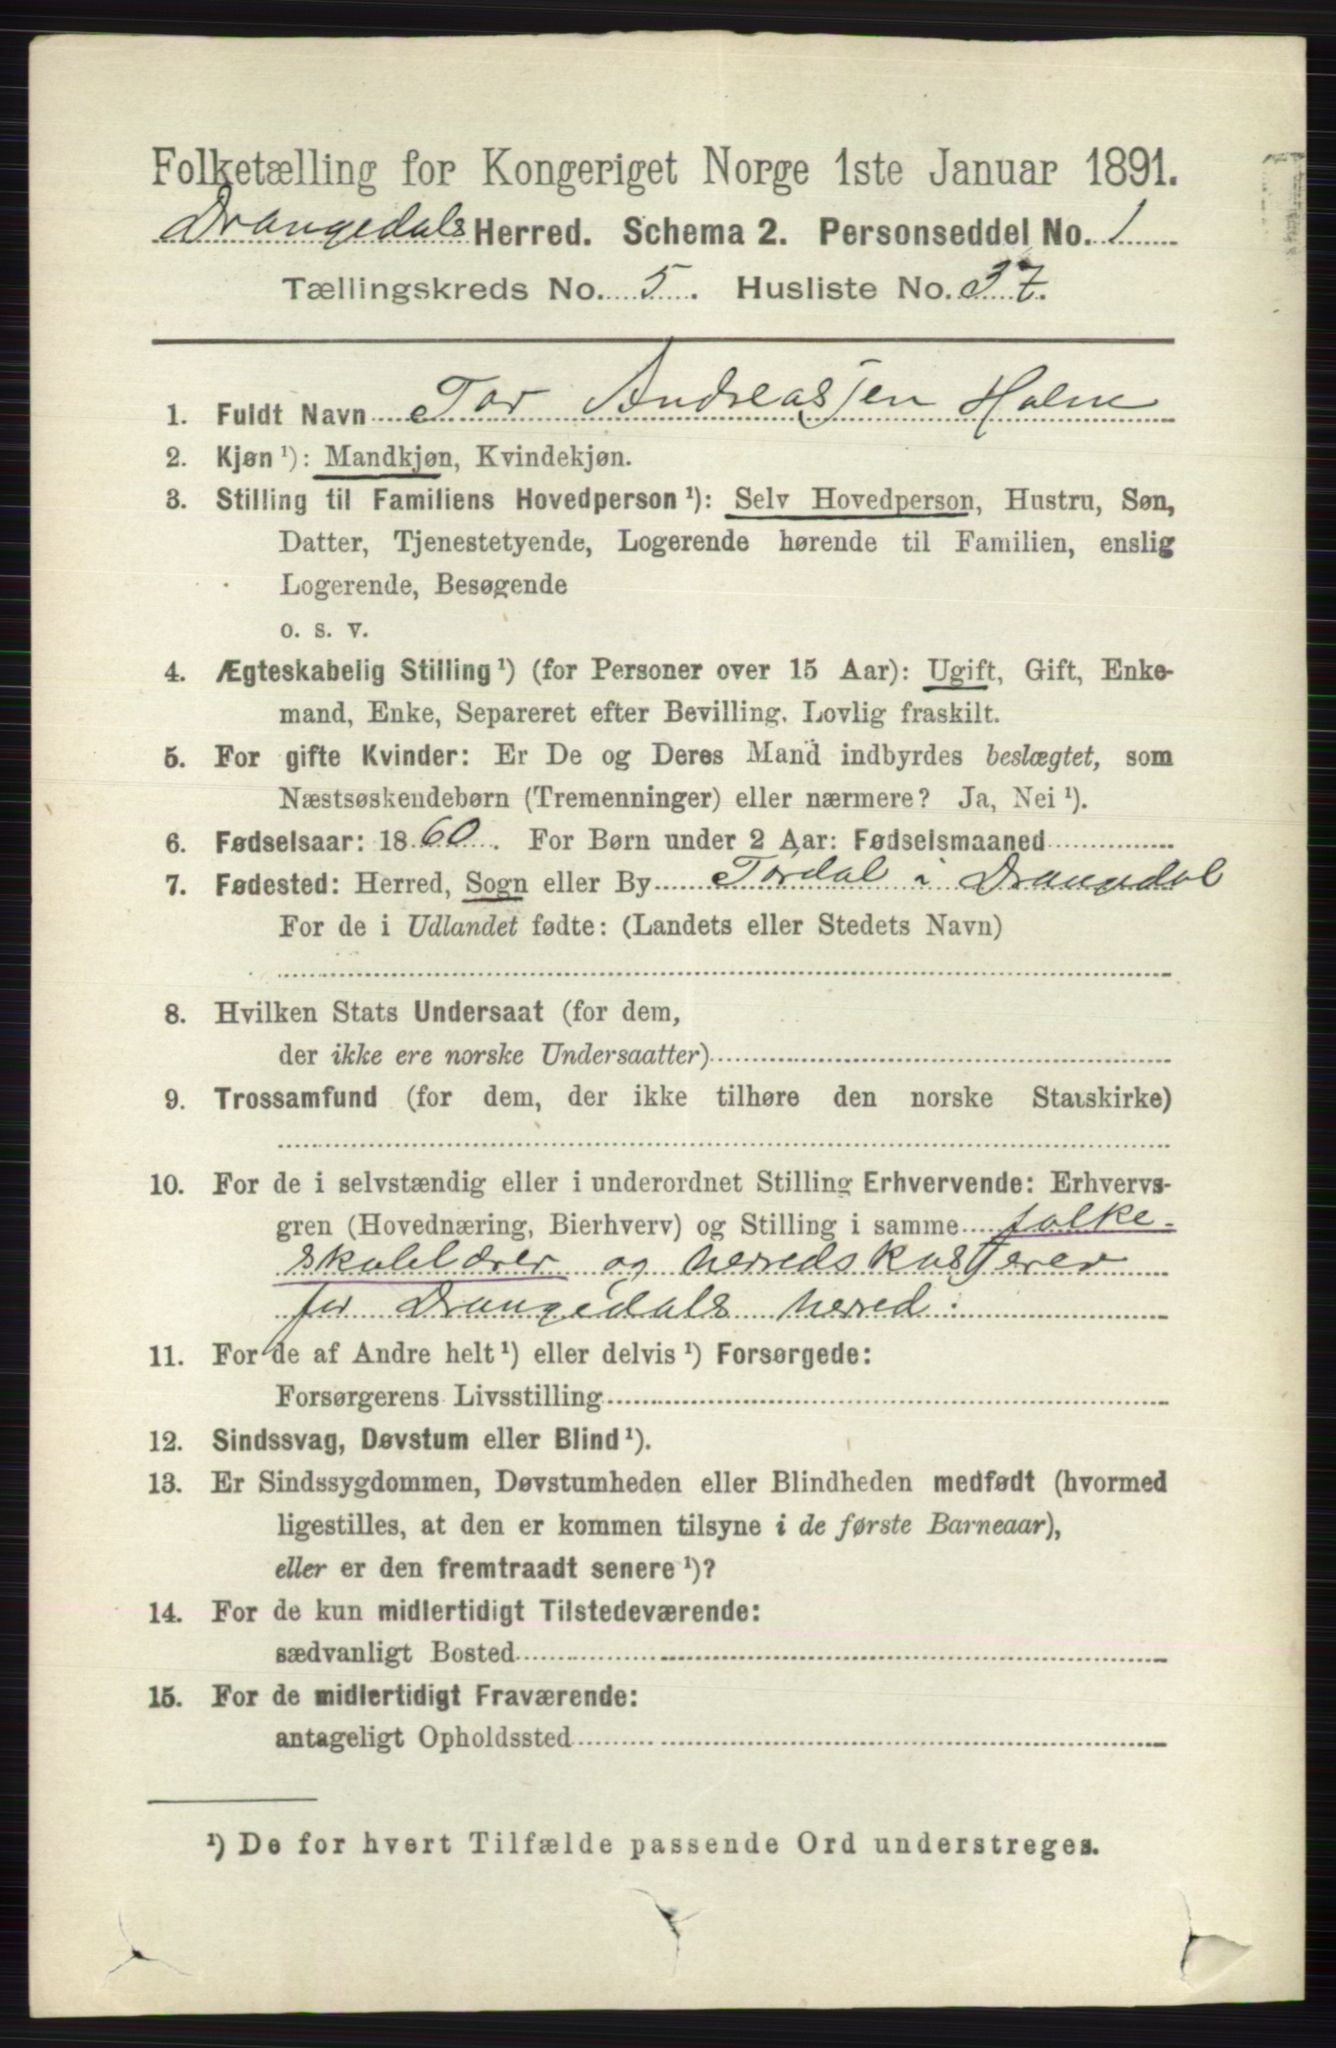 Folketælling for Kongeriget Norge 1ste Januar 1891.
Drangedals Herred. Schema 2. Personseddel No. 1
Tællingskreds No. 5. Husliste No. 37.
1. Fuldt Navn Tor Andreassen Holm
2. Kjøn ¹): Mandkjøn, Kvindekjøn.
3. Stilling til Familiens Hovedperson ¹): Selv Hovedperson, Hustru, Søn,
Datter, Tjenestetyende, Logerende hørende til Familien, enslig
Logerende, Besøgende
o. s. v.
4. Ægteskabelig Stilling ¹) (for Personer over 15 Aar): Ugift, Gift, Enke-
mand, Enke, Separeret efter Bevilling. Lovlig fraskilt.
5. For gifte Kvinder: Er De og Deres Mand indbyrdes beslægtet, som
Næstsøskendebørn (Tremenninger) eller nærmere? Ja, Nei ¹).
6. Fødselsaar: 1860. For Børn under 2 Aar: Fødselsmaaned
7. Fødested: Herred, Sogn eller By Tørdal i Drangedal
For de i Udlandet fødte: (Landets eller Stedets Navn)
8. Hvilken Stats Undersaat (for dem,
der ikke ere norske Undersaatter)
9. Trossamfund (for dem, der ikke tilhøre den norske Statskirke)
10. For de i selvstændig eller i underordnet Stilling Erhvervende: Erhvervs-
gren (Hovednæring, Bierhverv) og Stilling i samme folke-
skolelærer og herredskasserer
for Drangedals herred.
11. For de af Andre helt ¹) eller delvis ¹) Forsørgede:
Forsørgerens Livsstilling
12. Sindssvag, Døvstum eller Blind ¹).
13. Er Sindssygdommen, Døvstumheden eller Blindheden medfødt (hvormed
ligestilles, at den er kommen tilsyne i de første Barneaar),
eller er den fremtraadt senere ¹)?
14. For de kun midlertidigt Tilstedeværende:
sædvanligt Bosted
15. For de midlertidigt Fraværende:
antageligt Opholdssted
¹) De for hvert Tilfælde passende Ord understreges.